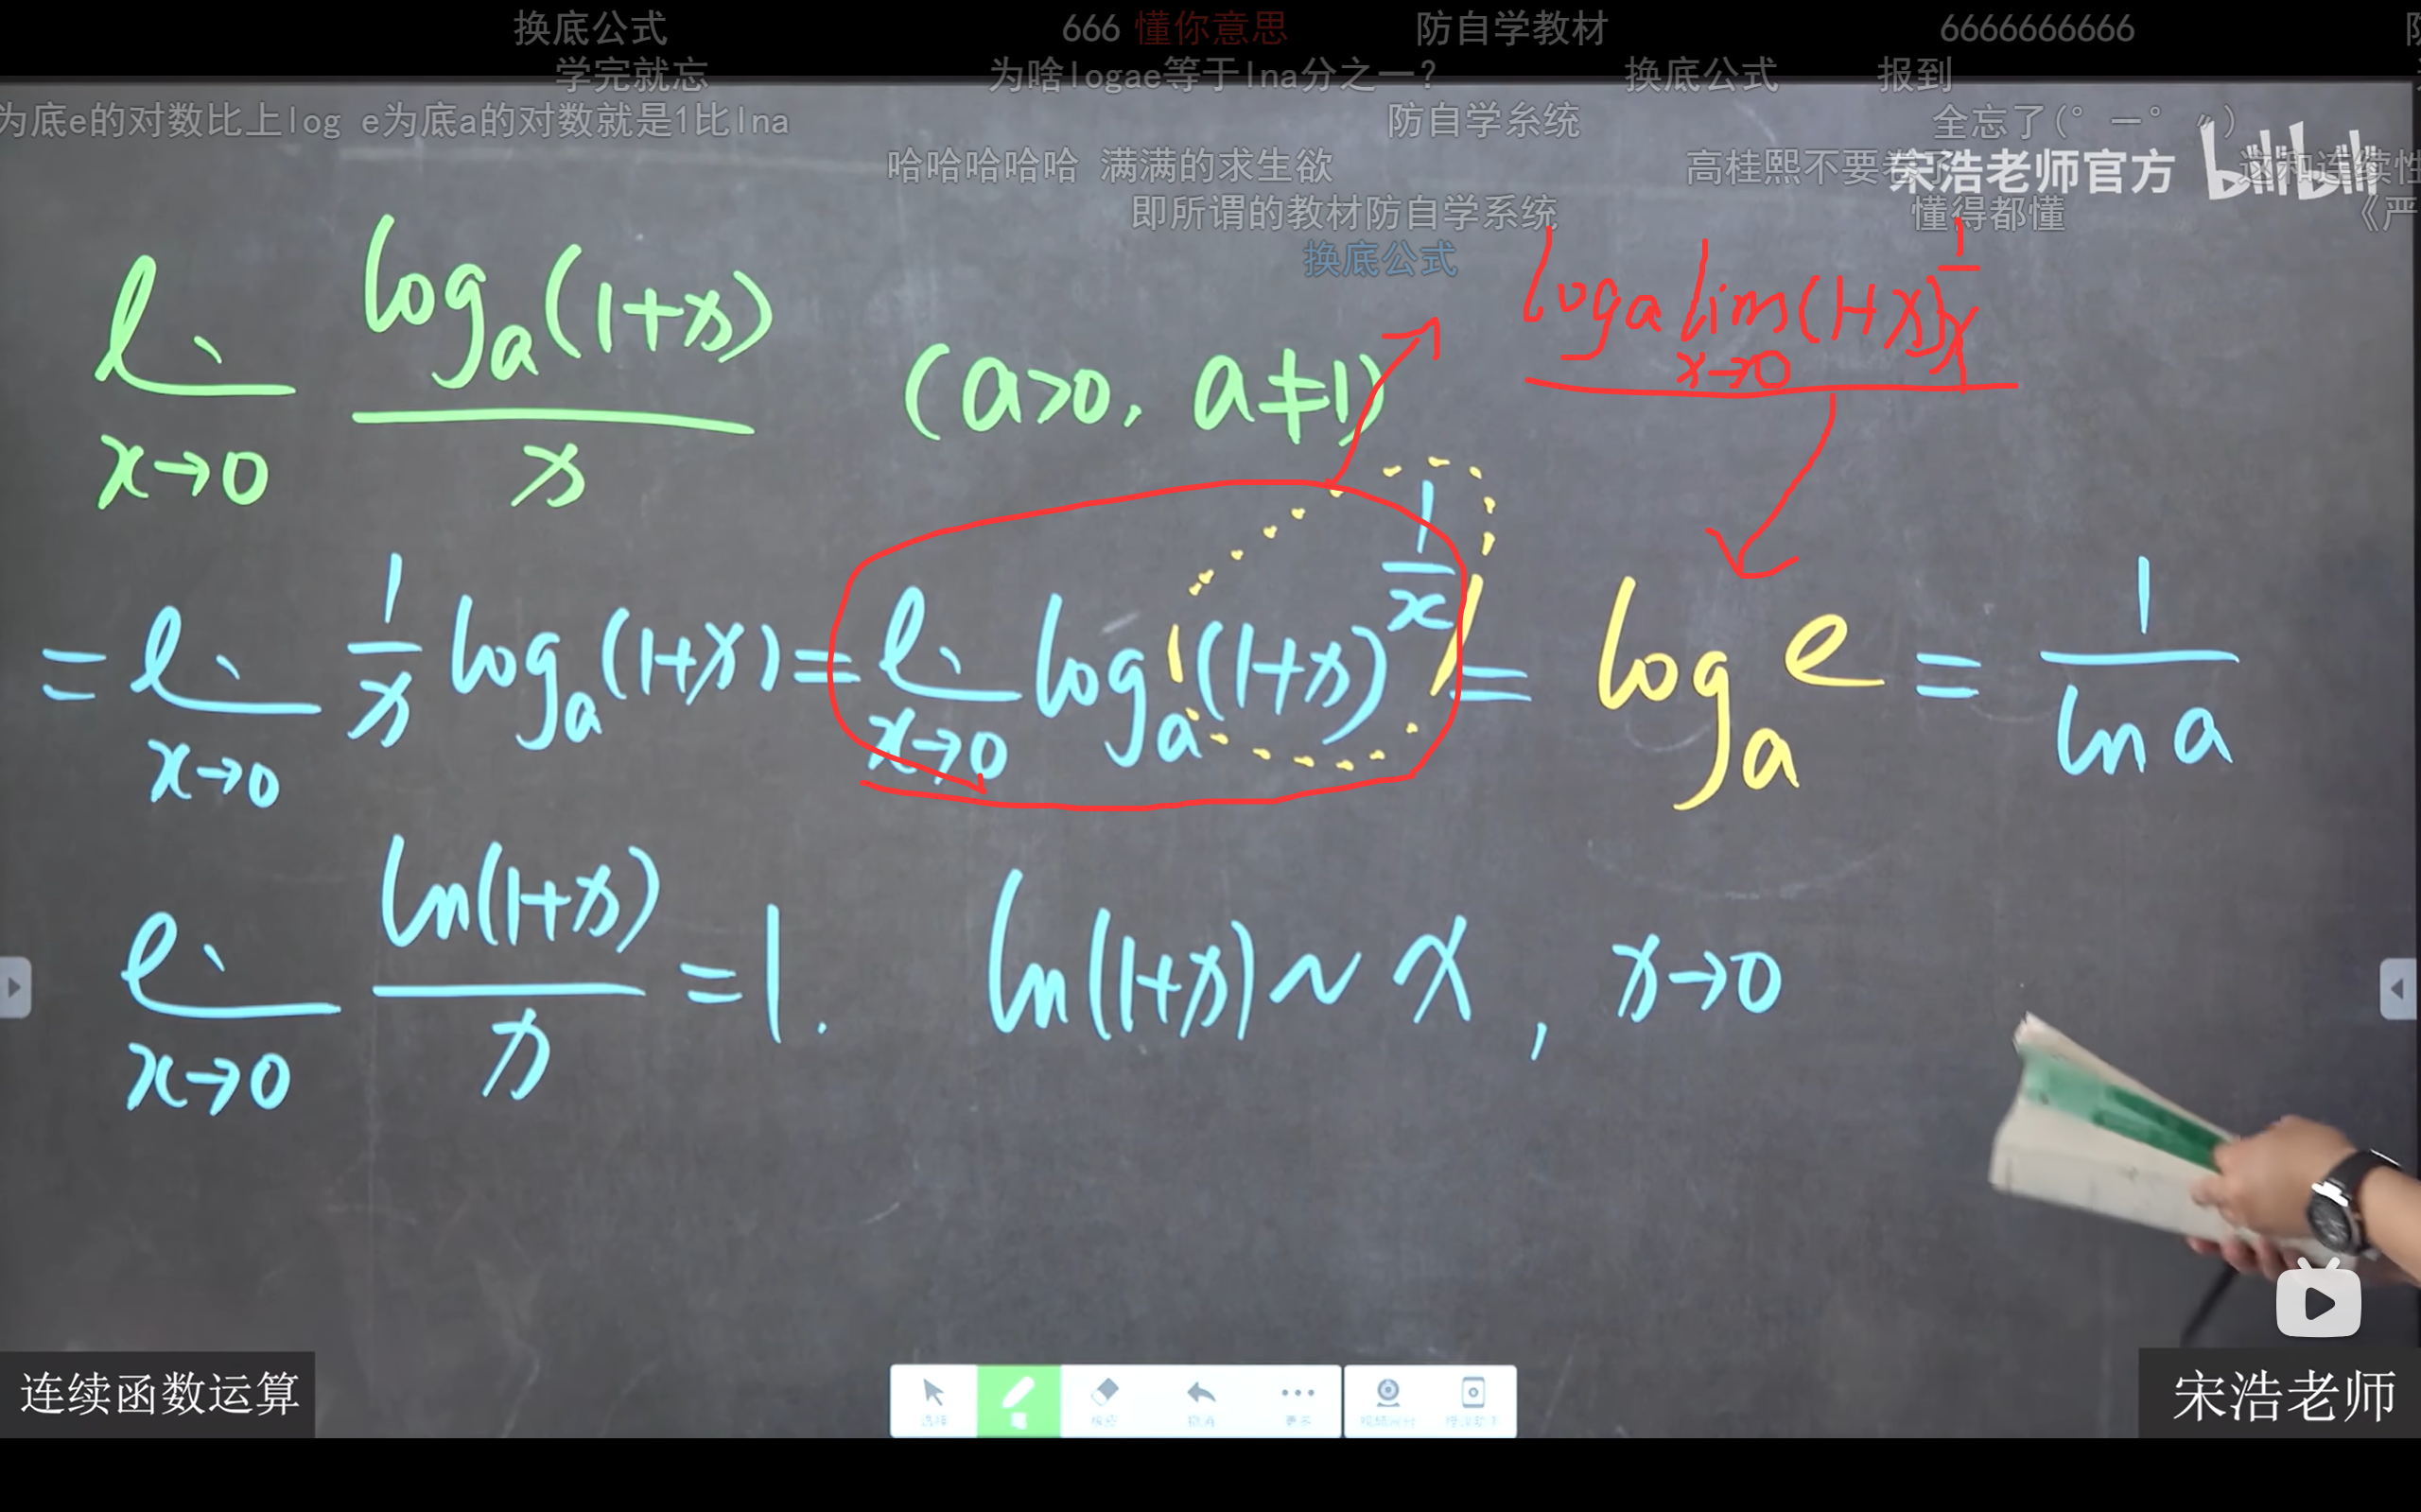 换底公式 666 懂你意思 防自学教材 6666666666 防
学完就忘 为啥logae等于lna分之一? 换底公式 报到
为底e的对数比上log e为底a的对数就是1比lna 防自学系统 全忘了(° — °〃)
哈哈哈哈哈 满满的求生欲 高桂熙不要卷了 宋浩老师官方 bilibili 这和连续性
即所谓的教材防自学系统 懂得都懂 《严
换底公式
logₐ lim(1+x)^(1/x)
x→0
l. logₐ(1+x)/x (a>0, a≠1)
x→0
= l. 1/x logₐ(1+x) = l. logₐ(1+x)^(1/x) = logₐ e = 1/ln a
x→0 x→0
l. ln(1+x)/x = 1. ln(1+x) ~ x, x→0
x→0
连续函数运算
选择 笔 橡皮 撤消 更多
宋浩老师